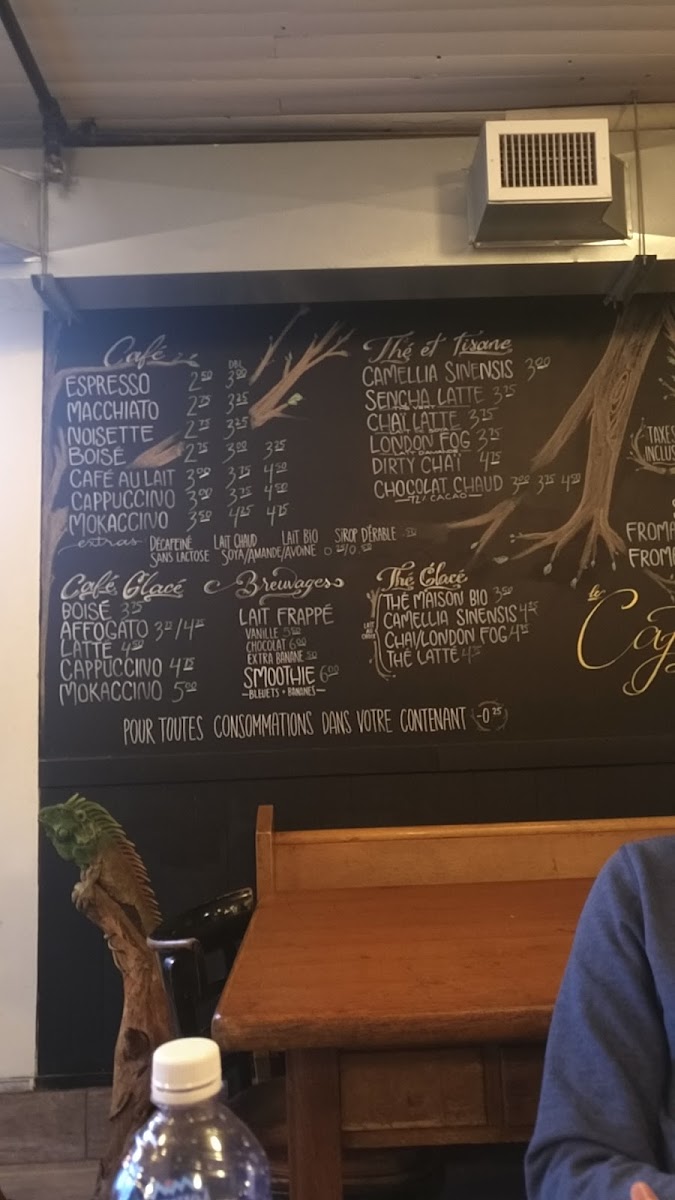 Café
DBL
ESPRESSO 2.50 3.00
MACCHIATO 2.75 3.25
NOISETTE 2.75 3.25
BOISÉ 2.75 3.00 3.25
CAFÉ AU LAIT 3.00 3.75 4.50
CAPPUCCINO 3.00 3.75 4.50
MOKACCINO 3.50 4.25 4.75
extras DÉCAFEINÉ LAIT CHAUD LAIT BIO SIROP D'ÉRABLE .50
SANS LACTOSE SOYA/AMANDE/AVOINE 0.25/0.50
Thé et tisane
CAMELLIA SINENSIS 3.00
SENCHA LATTE 3.75
CHAÏ LATTE 3.75
LONDON FOG 3.75
DIRTY CHAÏ 4.75
CHOCOLAT CHAUD 3.00 3.75 4.50
72% CACAO
TAXES
INCLUS
FROMA
FROM
Café Glacé
BOISÉ 3.25
AFFOGATO 3.75/4.75
LATTE 4.50
CAPPUCCINO 4.75
MOKACCINO 5.00
Breuvages
LAIT FRAPPÉ
VANILLE 5.50
CHOCOLAT 6.00
EXTRA BANANE .50
SMOOTHIE 6.00
BLEUETS + BANANES
Thé Glacé
THÉ MAISON BIO 3.50
CAMELLIA SINENSIS 4.25
CHAI/LONDON FOG 4.75
THÉ LATTÉ 4.75
le
Caf
POUR TOUTES CONSOMMATIONS DANS VOTRE CONTENANT -0.25